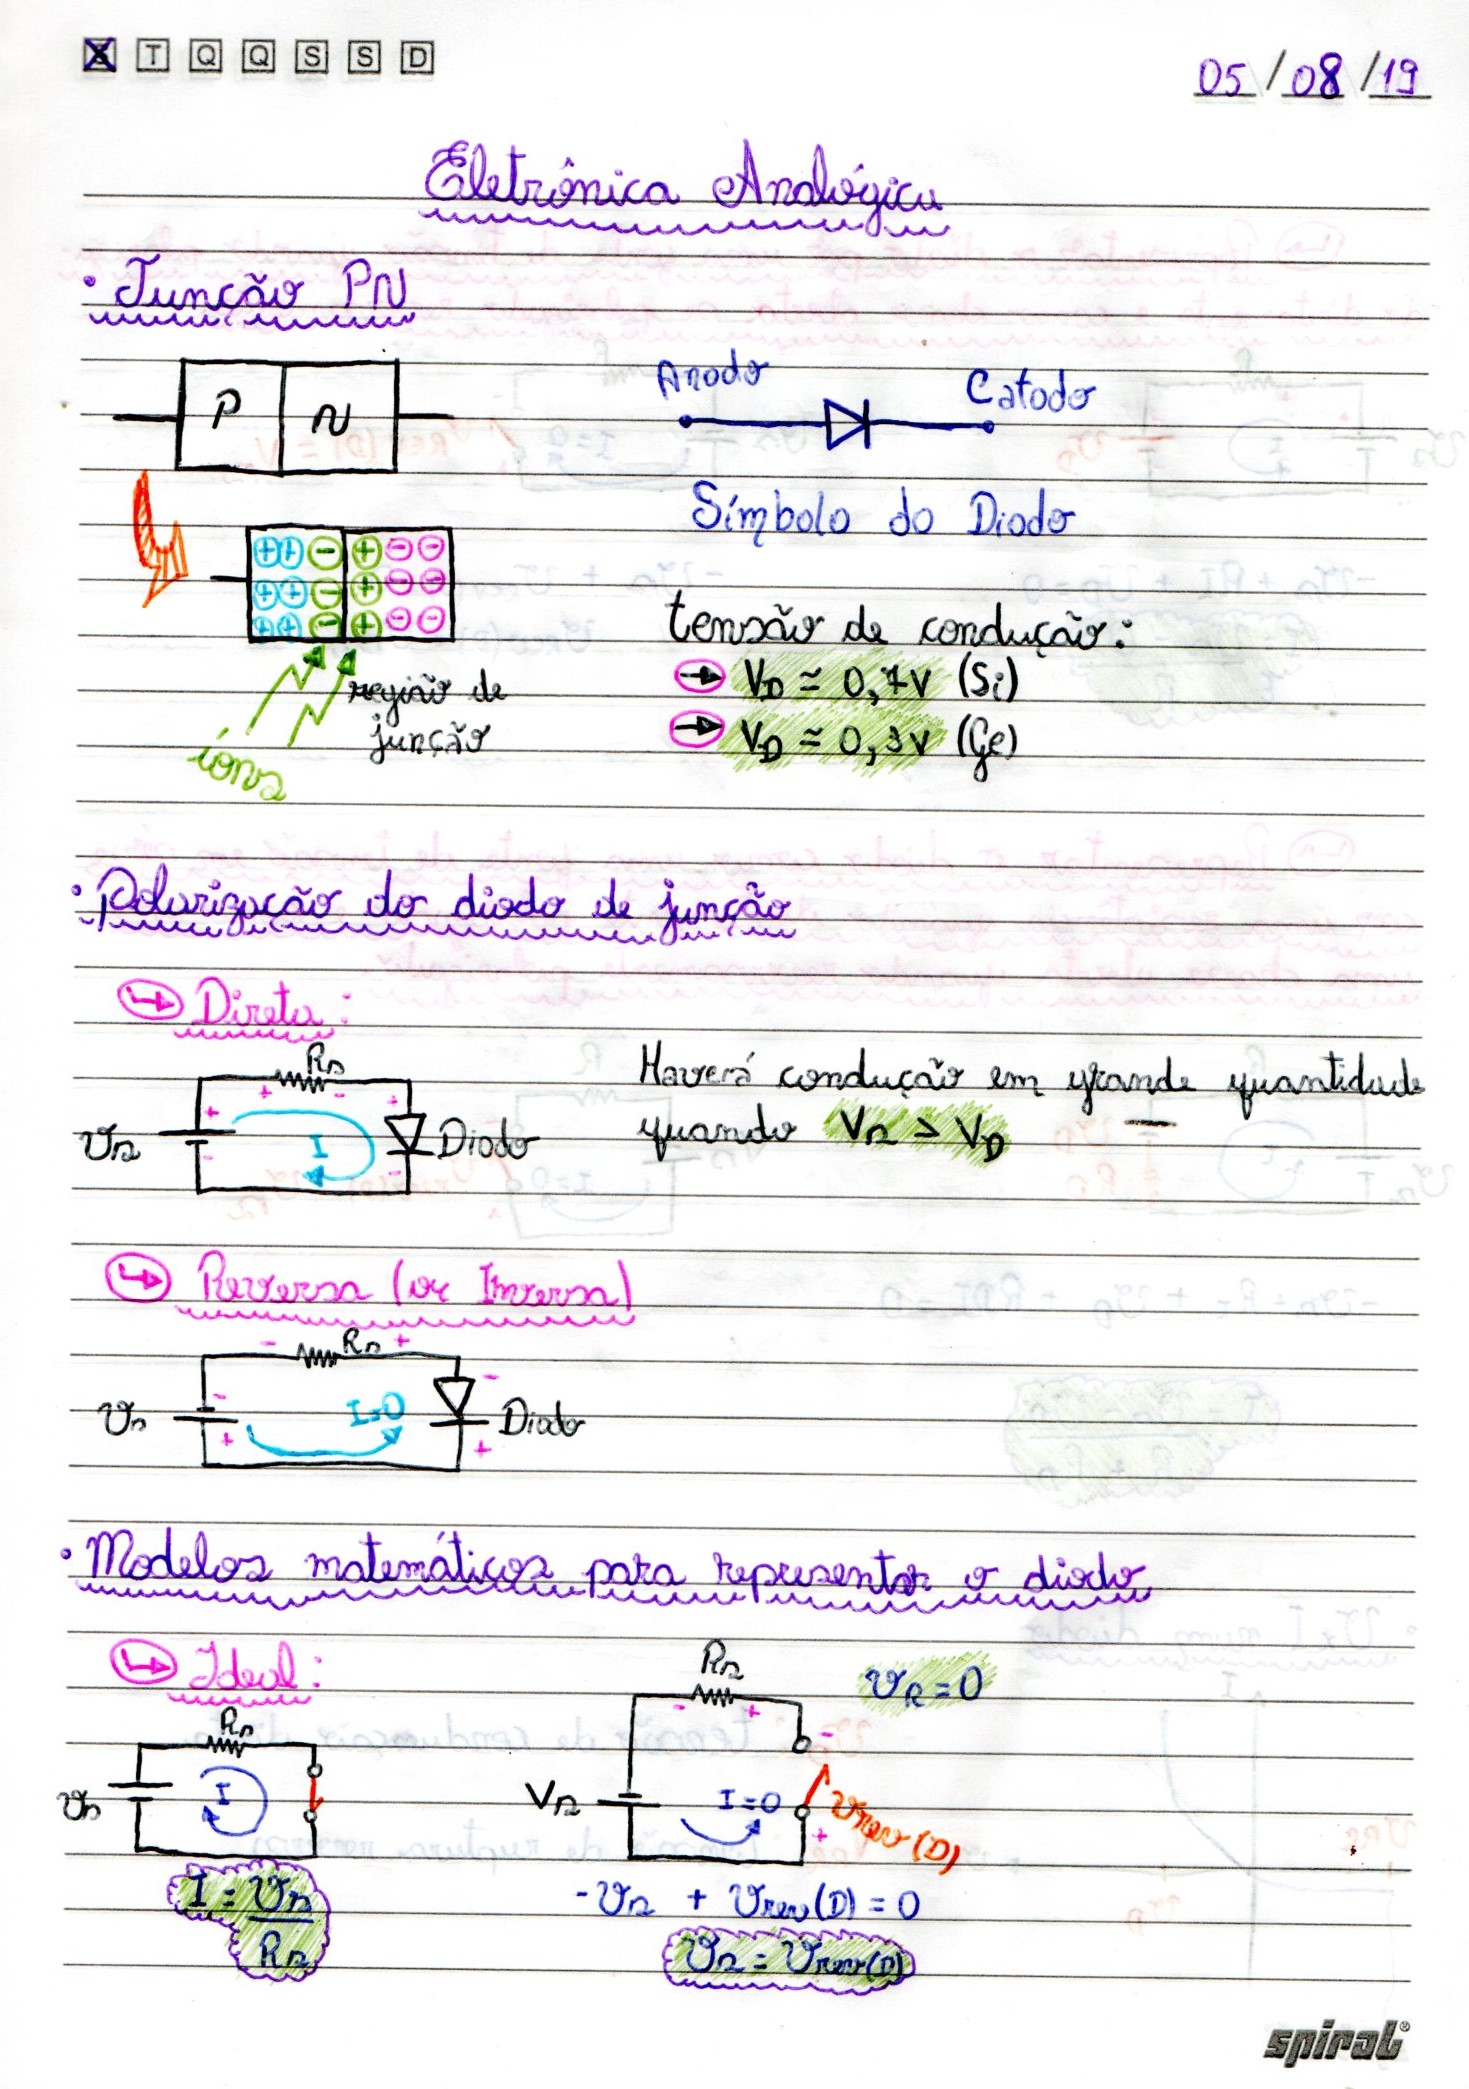 S T Q Q S S D
05/08/19
Eletrônica Analógica
• Junção PN
P N
Anodo
Catodo
Símbolo do Diodo
++ - + - -
++ - + - -
++ - + - -
íons
região de
junção
tensão de condução:
→ VD ≃ 0,7V (Si)
→ VD ≃ 0,3V (Ge)
• Polarização do diodo de junção
↳ Direta:
Rs
+ -
+ +
Vs I Diodo
- -
Haverá condução em grande quantidade
quando Vs > VD
↳ Reversa (ou Inversa)
- Rs +
- -
Vs I=0 Diodo
+ +
• Modelos matemáticos para representar o diodo
↳ Ideal:
Rs
Vs I
I = Vs
Rs
Rs
- +
VR = 0
-
Vs I=0 Vrev(D)
+
-Vs + Vrev(D) = 0
Vs = Vrev(D)
spiral®